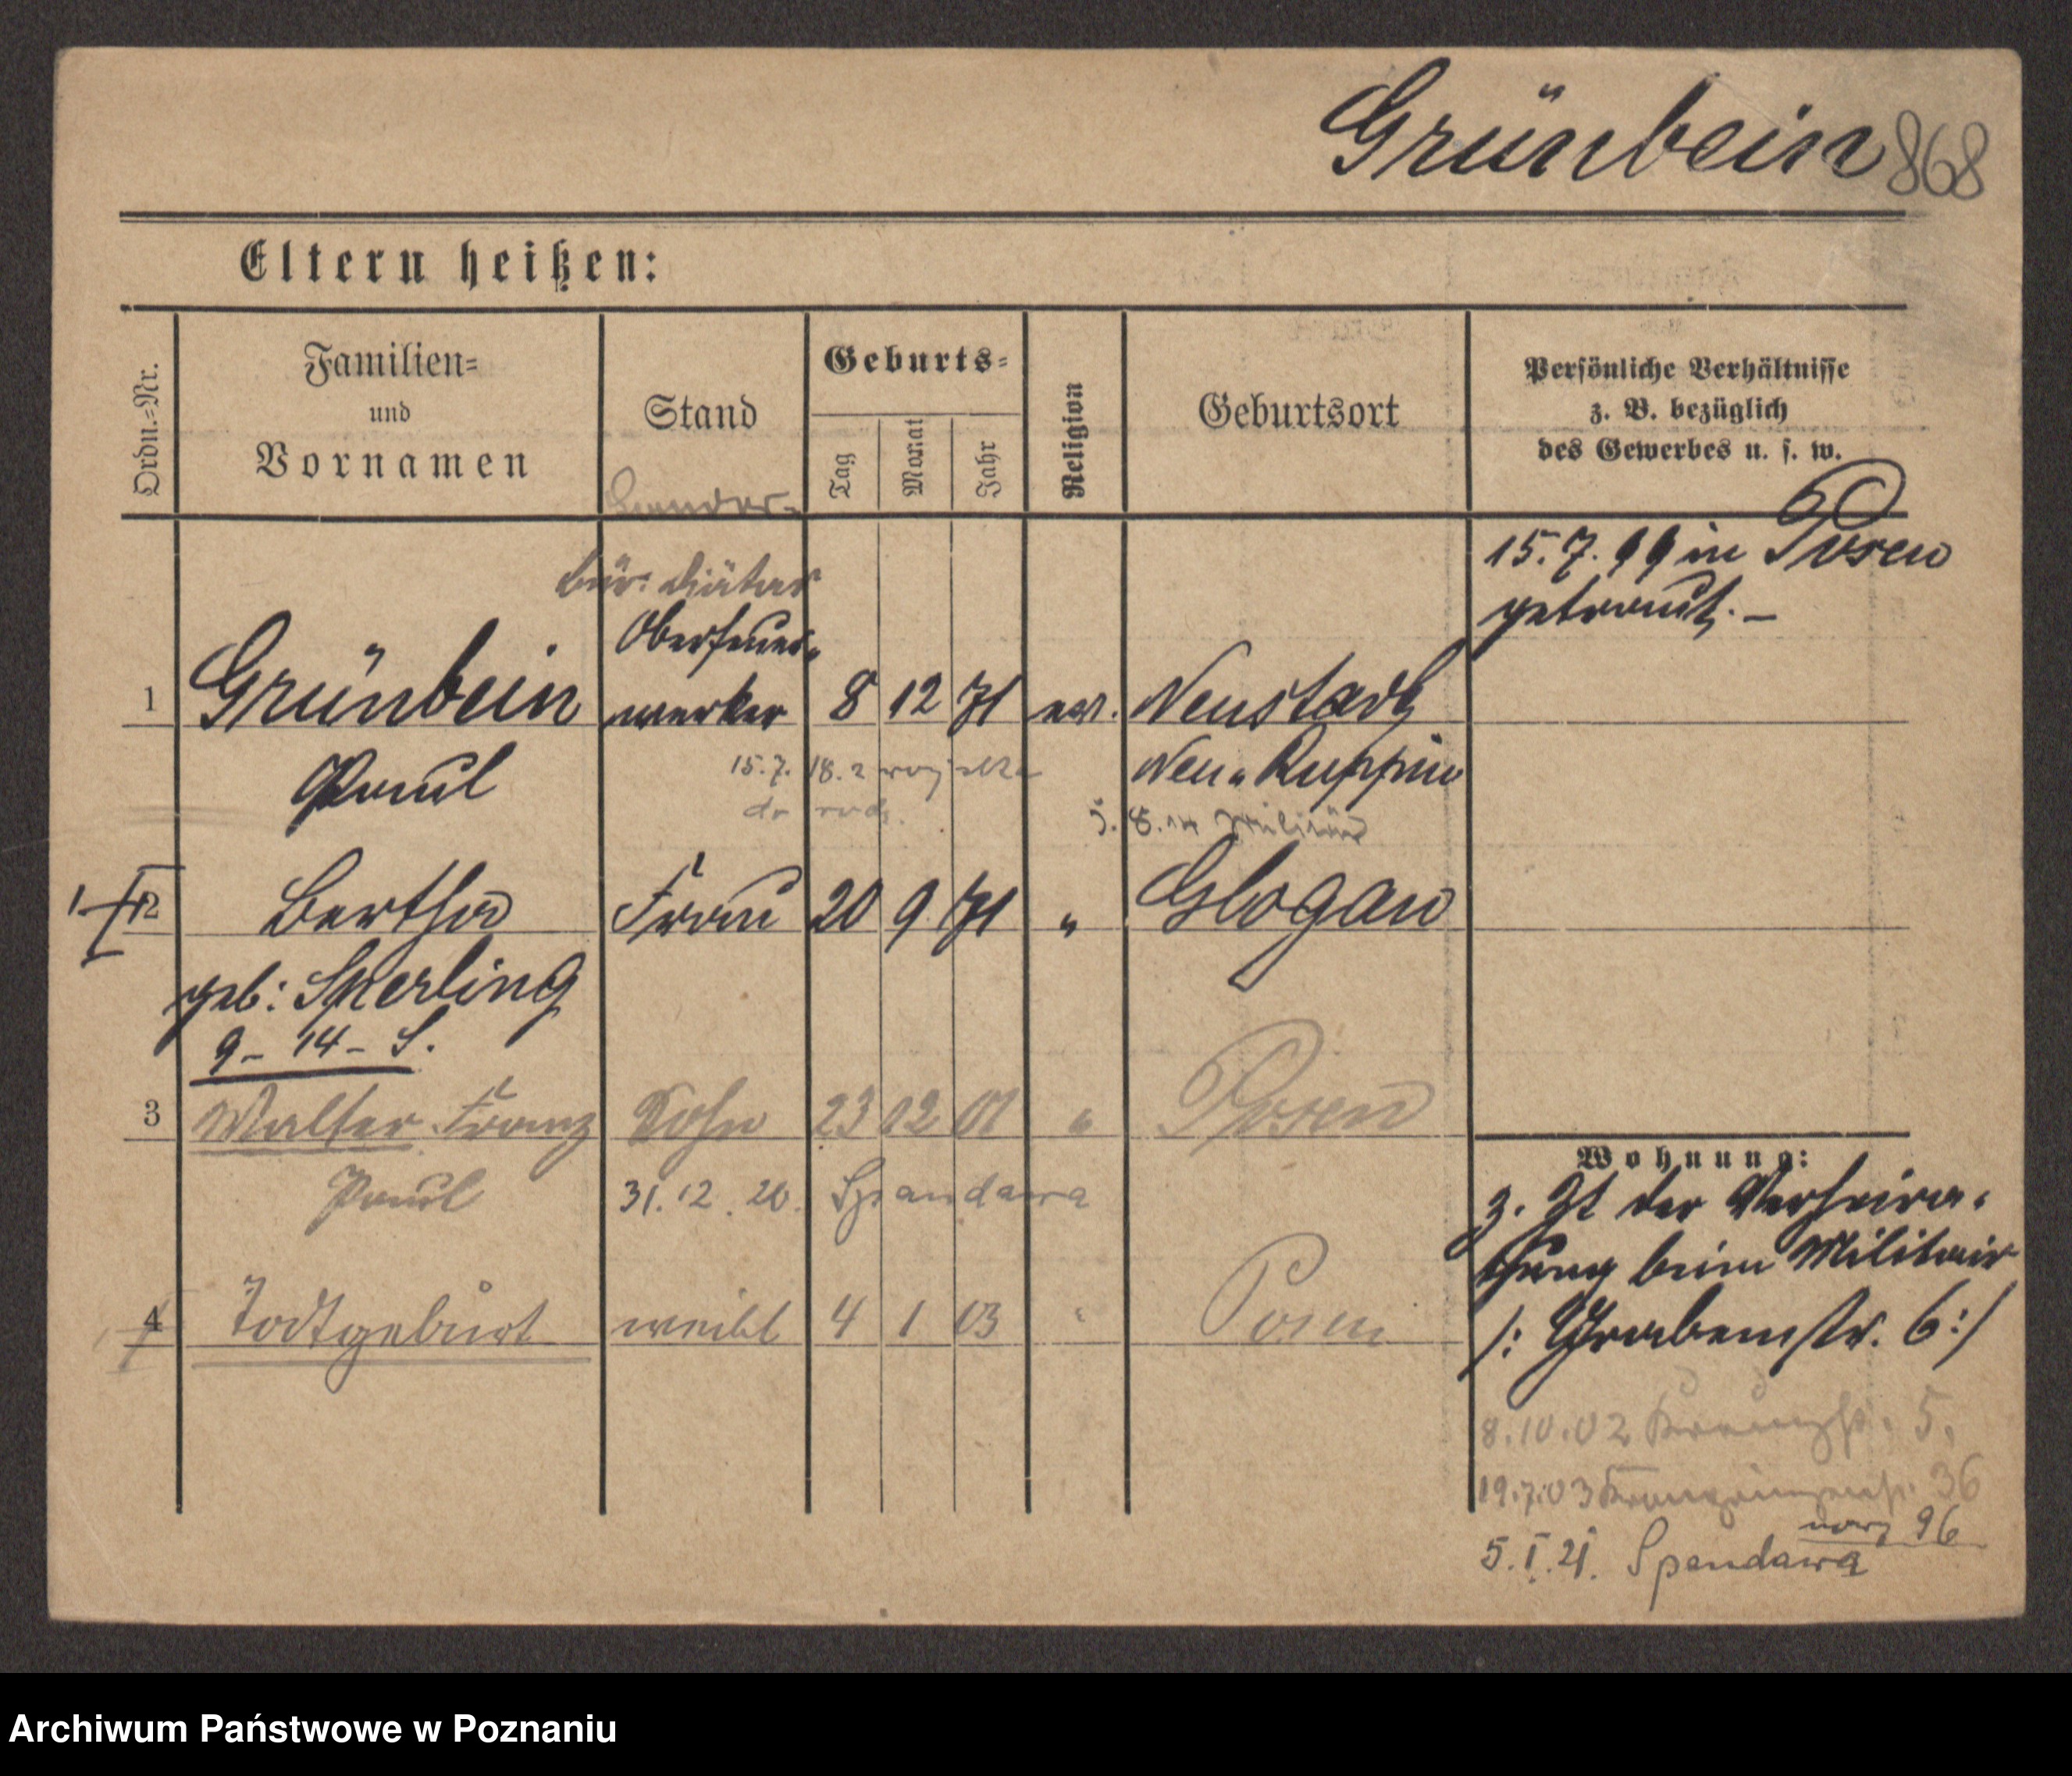 Grünbein 868
Eltern heißen:
Ordn.-Nr.
Familien-
und
Vornamen
Stand
Geburts-
Tag
Monat
Jahr
Religion
Geburtsort
Persönliche Verhältnisse
z. B. bezüglich
des Gewerbes u. s. w.
15.7.99 in Posen
getraut. –
Bür. Diätar
Oberfeuer-
1 Grünbein werker 8 12 71 ev. Neustadt
Paul
Neu-Ruppin
15.7. 18. z wojska
do rodz.
5. 8. 14 Militär
2 Bertha Frau 20 9 71 " Glogau
geb: Skerling
9 - 14 - S.
3 Walter Franz Sohn 23 12 01 " Posen
Paul 31.12.20. Spandawa
4 Todtgeburt weibl 4 1 03 " Posen
Wohnung:
z. Zt der Verheira-
thung beim Militair
/: Grabenstr. 6 :/
8.10.02 5.
19.7.03 36
96
5.I.21. Spandawa
Archiwum Państwowe w Poznaniu